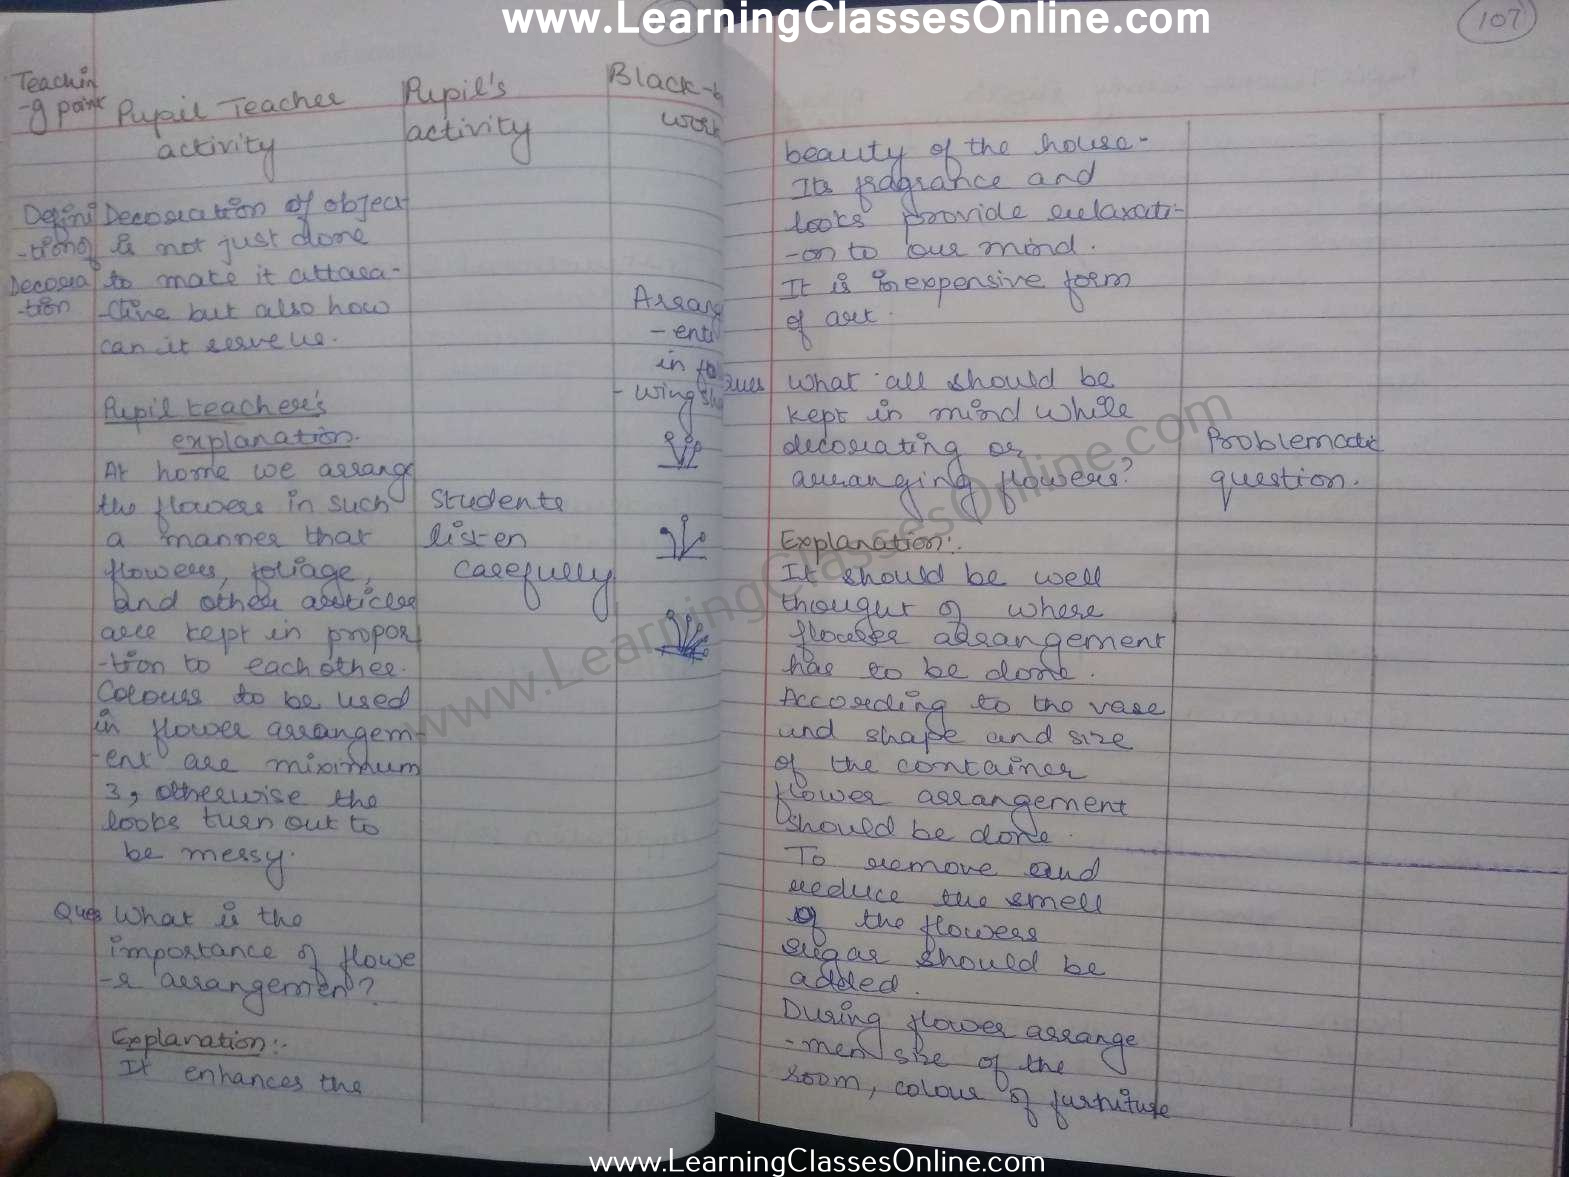 www.LearningClassesOnline.com
107
Teachin
-g point
Pupil Teacher
activity
Pupil's
activity
Black-b
work
Defini
-tion of
Decora
-tion
Decoration of object
is not just done
to make it attara-
-ctive but also how
can it serve us.
Pupil teacher's
explanation.
At home we arrange
the flowers in such
a manner that
flowers, foliage,
and other articles
are kept in propor
-tion to each other.
Colours to be used
in flower arrangem-
-ent are miximum
3, otherwise the
looks turn out to
be messy.
Students
listen
carefully
Arrang
-ent
in fo
-wing sha
Ques What is the
importance of flowe
-r arrangemen?
Explanation:-
It enhances the
beauty of the house-
Its fragrance and
looks provide relaxati-
-on to our mind.
It is inexpensive form
of art.
Ques What all should be
kept in mind while
decorating or
arranging flowers?
Problematic
question.
Explanation:-
It should be well
thought of where
flower arrangement
has to be done.
According to the vase
and shape and size
of the container
flower arrangement
should be done.
To remove and
reduce the smell
of the flowers
sugar should be
added.
During flower arrange
-men size of the
room, colour of furniture
www.LearningClassesOnline.com
www.LearningClassesOnline.com